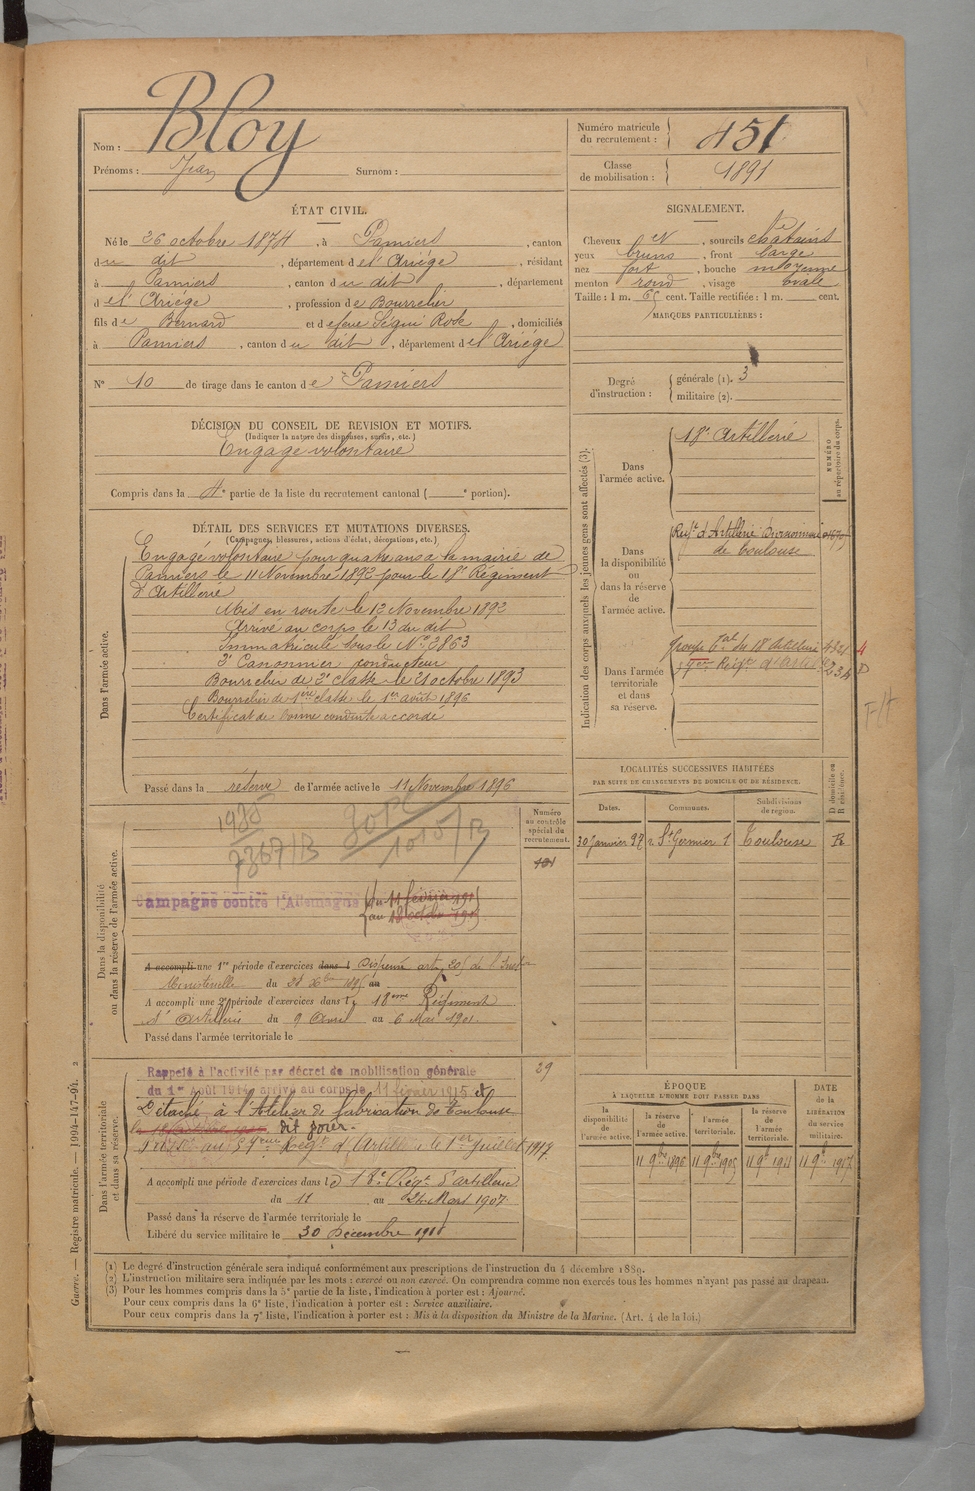 Nom : Bloy
Prénoms : Jean Surnom :
Numéro matricule du recrutement : 451
Classe de mobilisation : 1891
ÉTAT CIVIL.
Né le 26 octobre 1874, à Pamiers, canton
du dit, département de l'Ariége, résidant
à Pamiers, canton du dit, département
de l'Ariége, profession de Bourrelier
fils de Bernard et de feue Ségui Rose, domiciliés
à Pamiers, canton du dit, département de l'Ariége
N° 10 de tirage dans le canton de Pamiers
SIGNALEMENT.
Cheveux et sourcils chatains
yeux bruns, front large
nez fort, bouche moyenne
menton rond, visage ovale
Taille : 1 m. 65 cent. Taille rectifiée : 1 m. cent.
MARQUES PARTICULIÈRES :
Degré d'instruction : générale (1). 3
militaire (2).
DÉCISION DU CONSEIL DE REVISION ET MOTIFS.
(Indiquer la nature des dispenses, sursis, etc.)
Engagé volontaire
Compris dans la 4e partie de la liste du recrutement cantonal ( e portion).
DÉTAIL DES SERVICES ET MUTATIONS DIVERSES.
(Campagnes, blessures, actions d'éclat, décorations, etc.)
Dans l'armée active.
Engagé volontaire pour quatre ans à la mairie de
Pamiers le 11 Novembre 1892 pour le 18e Régiment
d'Artillerie
Mis en route le 12 Novembre 1892
Arrivé au corps le 13 du dit
Immatriculé sous le N° 2863
2e Canonnier conducteur
Bourrelier de 2e classe le 21 octobre 1893
Bourrelier de 1ère classe le 1er août 1896
Certificat de bonne conduite accordé
Passé dans la réserve de l'armée active le 11 Novembre 1896
Indication des corps auxquels les jeunes gens sont affectés (3).
NUMÉRO au répertoire du corps.
Dans l'armée active.
18e Artillerie
Dans la disponibilité ou dans la réserve de l'armée active.
Regt d'Artillerie
de Toulouse
Dans l'armée territoriale et dans sa réserve.
Groupe du 18 Artillerie
LOCALITÉS SUCCESSIVES HABITÉES
PAR SUITE DE CHANGEMENTS DE DOMICILE OU DE RÉSIDENCE.
Dates. Communes. Subdivisions de région. D domicile ou R résidence.
30 Janvier 97 r St Germier 1 Toulouse R
Dans la disponibilité ou dans la réserve de l'armée active.
Numéro au contrôle spécial du recrutement.
1985
7367/B
1015/B
Campagne contre l'Allemagne du 11 février 1915
au
A accompli une 1re période d'exercices dans l Dispensé art. 205 de l'Instr
Ministérielle du au
A accompli une 2e période d'exercices dans le 18ème Régiment
d'Artillerie du 9 Avril au 6 Mai 1901.
Passé dans l'armée territoriale le
Dans l'armée territoriale et dans sa réserve.
29
Rappelé à l'activité par décret de mobilisation générale
du 1er Août 1914, arrivé au corps le 11 février 1915 et
Détaché à l'Atelier de fabrication de Toulouse
dit jour.
Passé au 57ème Régt d'Artillerie le 1er Juillet 1917.
A accompli une période d'exercices dans le 18e Régt d'artillerie
du 11 au 24 Mars 1907
Passé dans la réserve de l'armée territoriale le
Libéré du service militaire le 30 Décembre 1918
ÉPOQUE
À LAQUELLE L'HOMME DOIT PASSER DANS
DATE de la LIBÉRATION du service militaire.
la disponibilité de l'armée active. la réserve de l'armée active. l'armée territoriale. la réserve de l'armée territoriale.
11 9bre 1896 11 9bre 1905 11 9bre 1911 11 9bre 1917
(1) Le degré d'instruction générale sera indiqué conformément aux prescriptions de l'instruction du 4 décembre 1889.
(2) L'instruction militaire sera indiquée par les mots : exercé ou non exercé. On comprendra comme non exercés tous les hommes n'ayant pas passé au drapeau.
(3) Pour les hommes compris dans la 5e partie de la liste, l'indication à porter est : Ajourné.
Pour ceux compris dans la 6e liste, l'indication à porter est : Service auxiliaire.
Pour ceux compris dans la 7e liste, l'indication à porter est : Mis à la disposition du Ministre de la Marine. (Art. 4 de la loi.)
Guerre. — Registre matricule. — 1994-147-94. 2